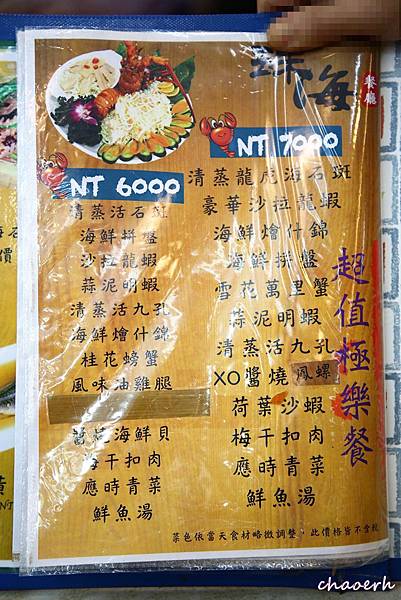 珠海
餐廳
NT 6000
清蒸活石斑
海鮮拼盤
沙拉龍蝦
蒜泥明蝦
清蒸活九孔
海鮮燴什錦
桂花螃蟹
風味油雞腿
海鮮貝
梅干扣肉
應時青菜
鮮魚湯
NT 7000
清蒸龍虎海石斑
豪華沙拉龍蝦
海鮮燴什錦
海鮮拼盤
雪花萬里蟹
蒜泥明蝦
清蒸活九孔
XO醬燒鳳螺
荷葉沙蝦
梅干扣肉
應時青菜
鮮魚湯
超值極樂餐
菜色依當天食材略微調整，此價格皆不含稅
chaoerh